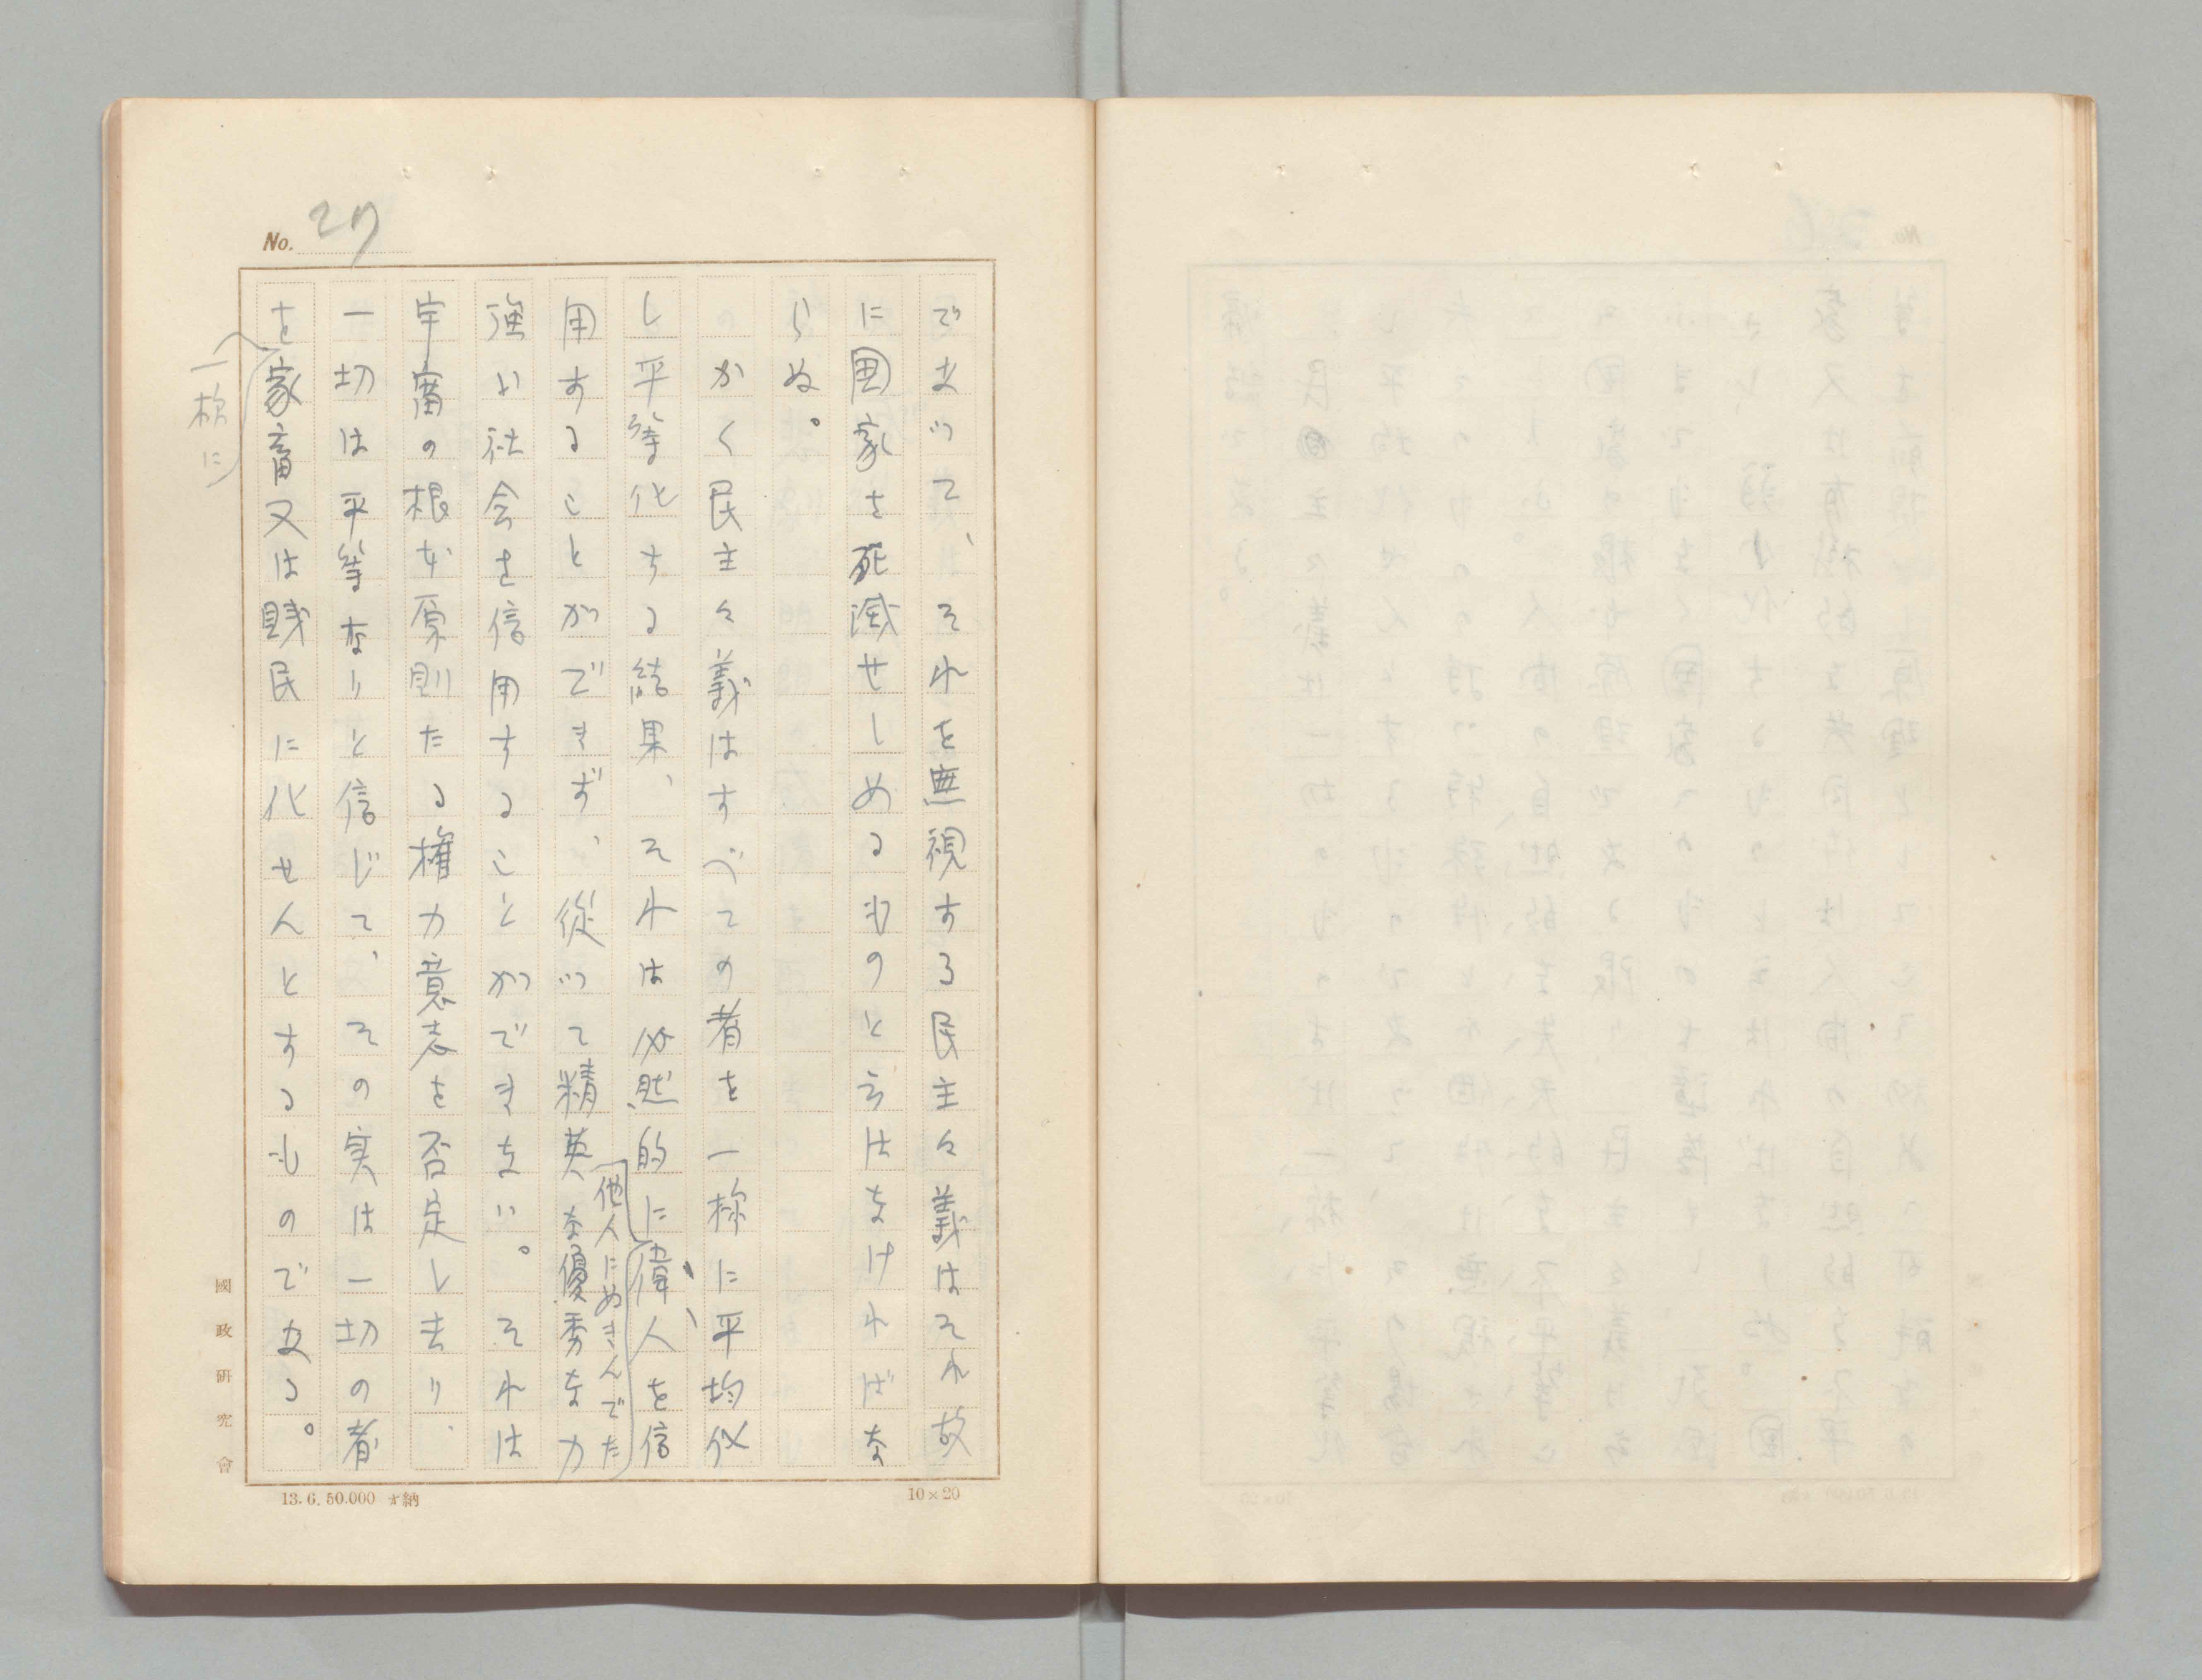 No. 27
であつて、それを無視する民主々義はそれ故
に国家を死滅せしめるものと云はなければな
らぬ。
かく民主々義はすべての者を一様に平均化
し平等化する結果、それは必然的に偉人を信
他人にぬきんでた
用することができず、従つて精英な優秀な力
強い社会を信用することができない。それは
宇宙の根本原則たる権力意志を否定し去り、
一切は平等なりと信じて、その実は一切の者
を家畜又は賤民に化せんとするものである。
一様に
國政研究會
13.6.50.000 才納
10×20